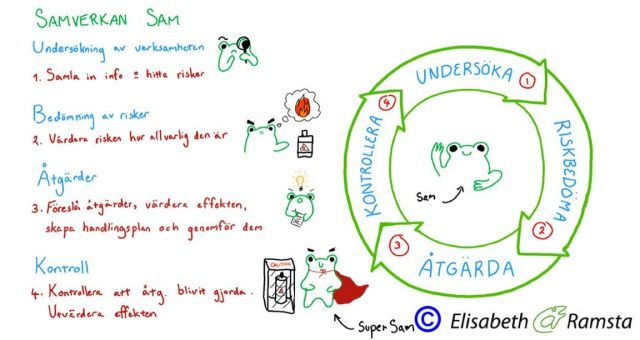 SAMVERKAN SAM
Undersökning av verksamheten
1. Samla in info + hitta risker
Bedömning av risker
2. Värdera risken hur allvarlig den är
Åtgärder
3. Föreslå åtgärder, värdera effekten,
skapa handlingsplan och genomför dem
Kontroll
4. Kontrollera att åtg. blivit gjorda.
Utvärdera effekten
CAUTION
Super Sam
UNDERSÖKA
1
RISKBEDÖMA
2
ÅTGÄRDA
3
KONTROLLERA
4
Sam
© Elisabeth Ramsta